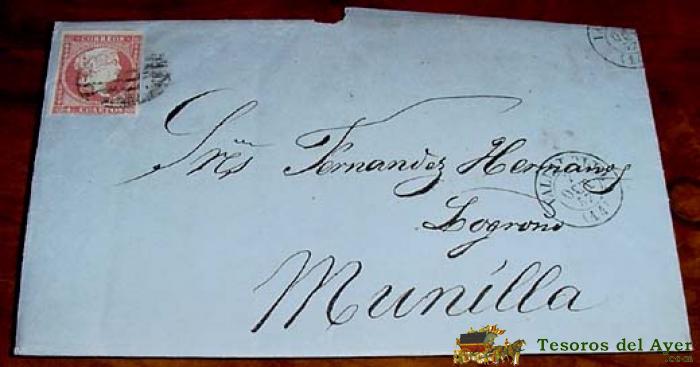 CORREOS
4 CUARTOS
Sres Fernandez Hermanos
Logroño
Munilla
Tesoros del Ayer
.com